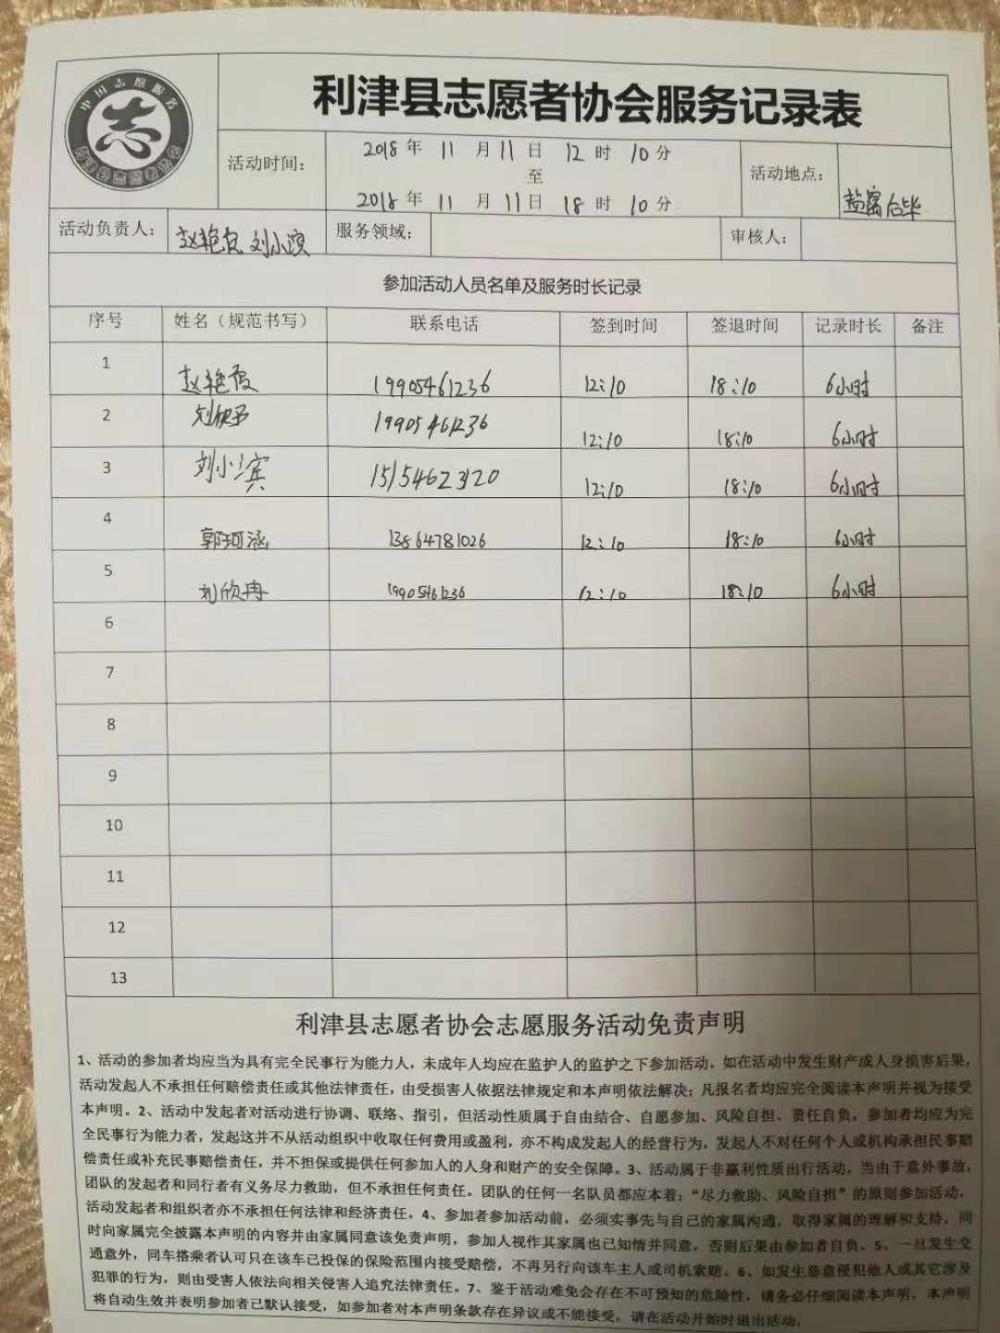 中国志愿服务
志
利津县志愿者协会服务记录表
活动时间:
2018年 11 月 11 日 12 时 10 分
至
2018年 11 月 11 日 18 时 10 分
活动地点:
活动负责人: 赵艳霞 刘小滨 服务领域: 审核人:
参加活动人员名单及服务时长记录
序号 姓名（规范书写） 联系电话 签到时间 签退时间 记录时长 备注
1 赵艳霞 19905461236 12:10 18:10 6小时
2 19905461236 12:10 18:10 6小时
3 刘小滨 15154623120 12:10 18:10 6小时
4 郭珂涵 13864781026 12:10 18:10 6小时
5 刘欣冉 19905461236 12:10 18:10 6小时
6
7
8
9
10
11
12
13
利津县志愿者协会志愿服务活动免责声明
1、活动的参加者均应当为具有完全民事行为能力人，未成年人均应在监护人的监护之下参加活动。如在活动中发生财产或人身损害后果，
活动发起人不承担任何赔偿责任或其他法律责任，由受损害人依据法律规定和本声明依法解决；凡报名者均应完全阅读本声明并视为接受
本声明。2、活动中发起者对活动进行协调、联络、指引，但活动性质属于自由结合、自愿参加、风险自担、责任自负，参加者均应为完
全民事行为能力者，发起这并不从活动组织中收取任何费用或盈利，亦不构成发起人的经营行为，发起人不对任何个人或机构承担民事赔
偿责任或补充民事赔偿责任，并不担保或提供任何参加人的人身和财产的安全保障。3、活动属于非赢利性质出行活动，当由于意外事故，
团队的发起者和同行者有义务尽力救助，但不承担任何责任。团队的任何一名队员都应本着：“尽力救助、风险自担”的原则参加活动，
活动发起者和组织者亦不承担任何法律和经济责任。4、参加者参加活动前，必须实事先与自己的家属沟通，取得家属的理解和支持，同
时向家属完全披露本声明的内容并由家属同意该免责声明，参加人视作其家属也已知情并同意，否则后果由参加者自负。5、一旦发生交
通意外，同车搭乘者认可只在该车已投保的保险范围内接受赔偿，不再另行向该车主人或司机索赔。6、如发生蓄意侵犯他人或其它涉及
犯罪的行为，则由受害人依法向相关侵害人追究法律责任。7、鉴于活动难免会存在不可预知的危险性，请务必仔细阅读本声明，本声明
将自动生效并表明参加者已默认接受，如参加者对本声明条款存在异议或不能接受，请在活动开始时退出活动。